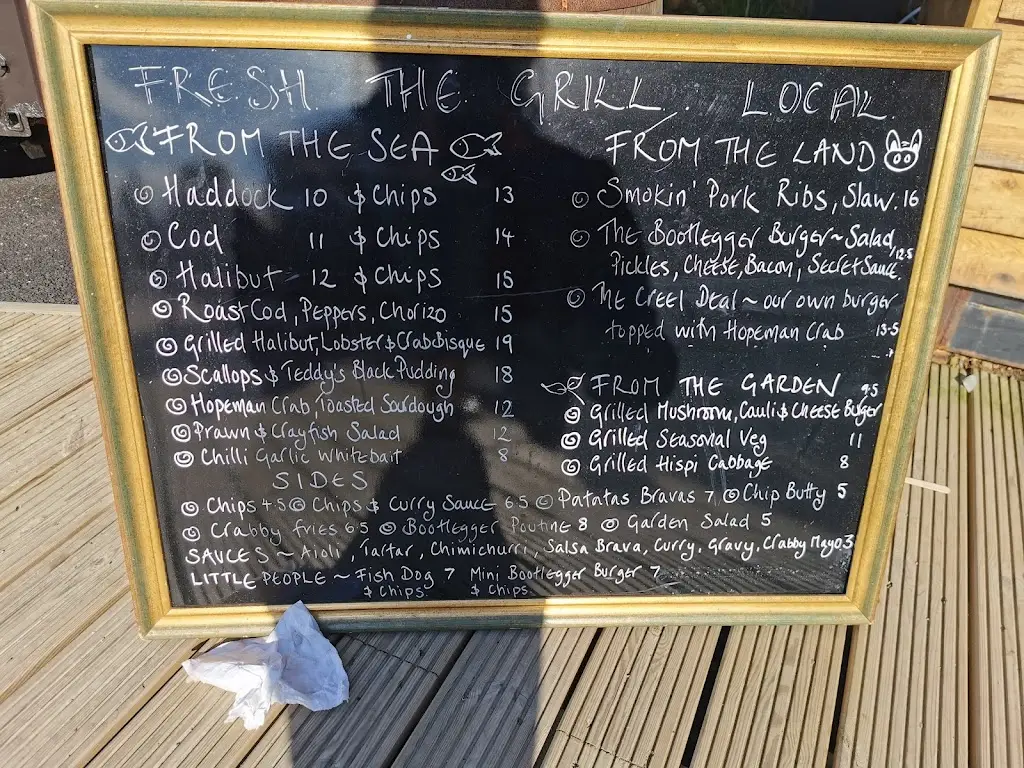 FRESH. THE GRILL. LOCAL.
FROM THE SEA
Haddock 10 & Chips 13
Cod 11 & Chips 14
Halibut 12 & Chips 15
Roast Cod, Peppers, Chorizo 15
Grilled Halibut, Lobster & Crab Bisque 19
Scallops & Teddy's Black Pudding 18
Hopeman Crab, Toasted Sourdough 12
Prawn & Crayfish Salad 12
Chilli Garlic Whitebait 8
FROM THE LAND
Smokin' Pork Ribs, Slaw. 16
The Bootlegger Burger ~ Salad, 12.5
Pickles, Cheese, Bacon, Secret Sauce.
The Creel Deal ~ our own burger
topped with Hopeman Crab 13.5
FROM THE GARDEN 9.5
Grilled Mushroom, Cauli & Cheese Burger
Grilled Seasonal Veg 11
Grilled Hispi Cabbage 8
SIDES
Chips 4.5 Chips & Curry Sauce 6.5 Patatas Bravas 7 Chip Butty 5
Crabby Fries 6.5 Bootlegger Poutine 8 Garden Salad 5
SAUCES ~ Aioli, Tartar, Chimichurri, Salsa Brava, Curry, Gravy, Crabby Mayo.3
LITTLE PEOPLE ~ Fish Dog 7 Mini Bootlegger Burger 7
& Chips. & Chips